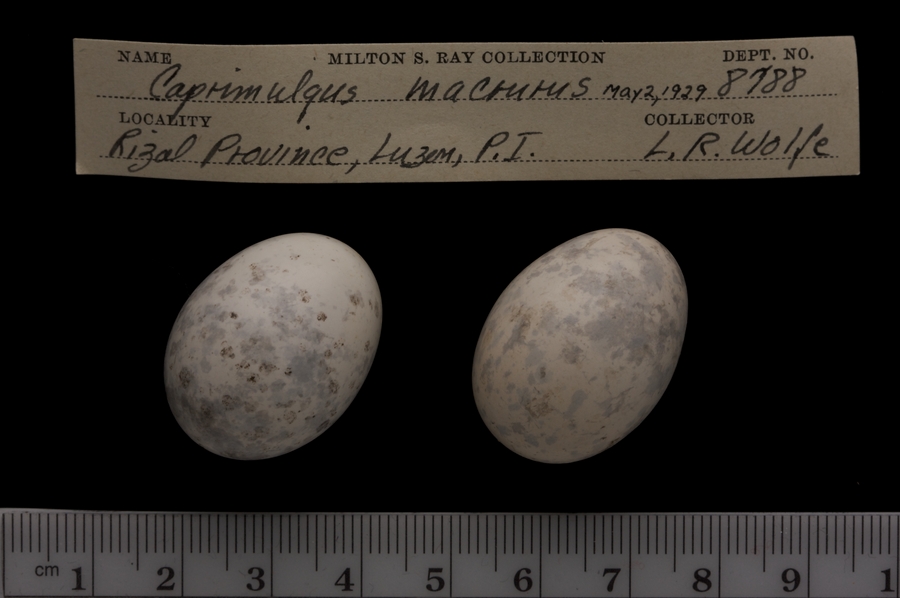 NAME MILTON S. RAY COLLECTION DEPT. NO.
Caprimulgus macrurus May 2, 1929 8788
LOCALITY COLLECTOR
Rizal Province, Luzon, P.I. L.R. Wolfe
cm 1 2 3 4 5 6 7 8 9 1